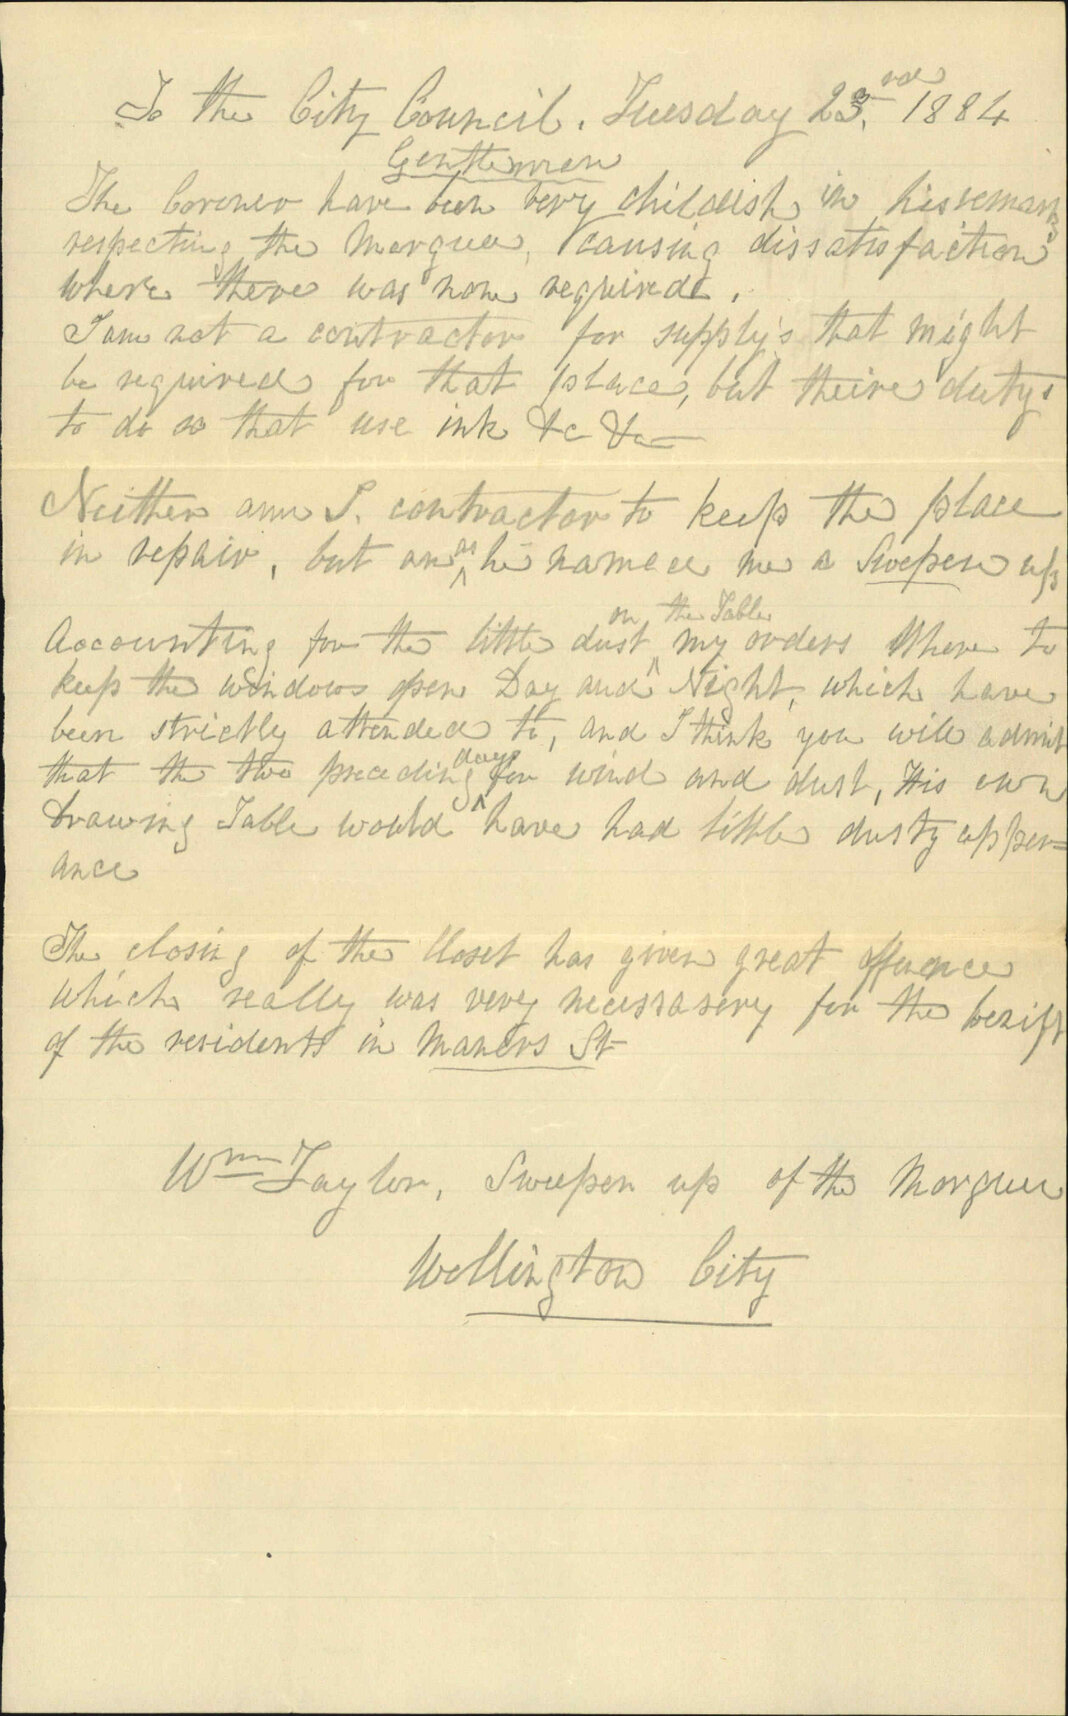 To the City Council. Tuesday 23rd. 1884
Gentlemen
The Coroner have been very childish in his remarks
respecting the Morgue, causing dissatisfaction
where there was none required.
I am not a contractor for supply's that might
be required for that place, but theire dutys
to do so that use ink &c &c
Neither am I. contractor to keep the place
in repair, but as he named me a Sweeper up
on the Table
Accounting for the little dust my orders Where to
keep the windows open Day and Night, which have
been strictly attended to, and I think you will admit
days
that the two preceding for wind and dust, His own
Drawing Table would have had little dusty apper=
ance
The closing of the Closet has given great offence
which really was very necessasery for the benifit
of the residents in Maners St
Wm Taylor, Sweeper up of the Morgue
Wellington City